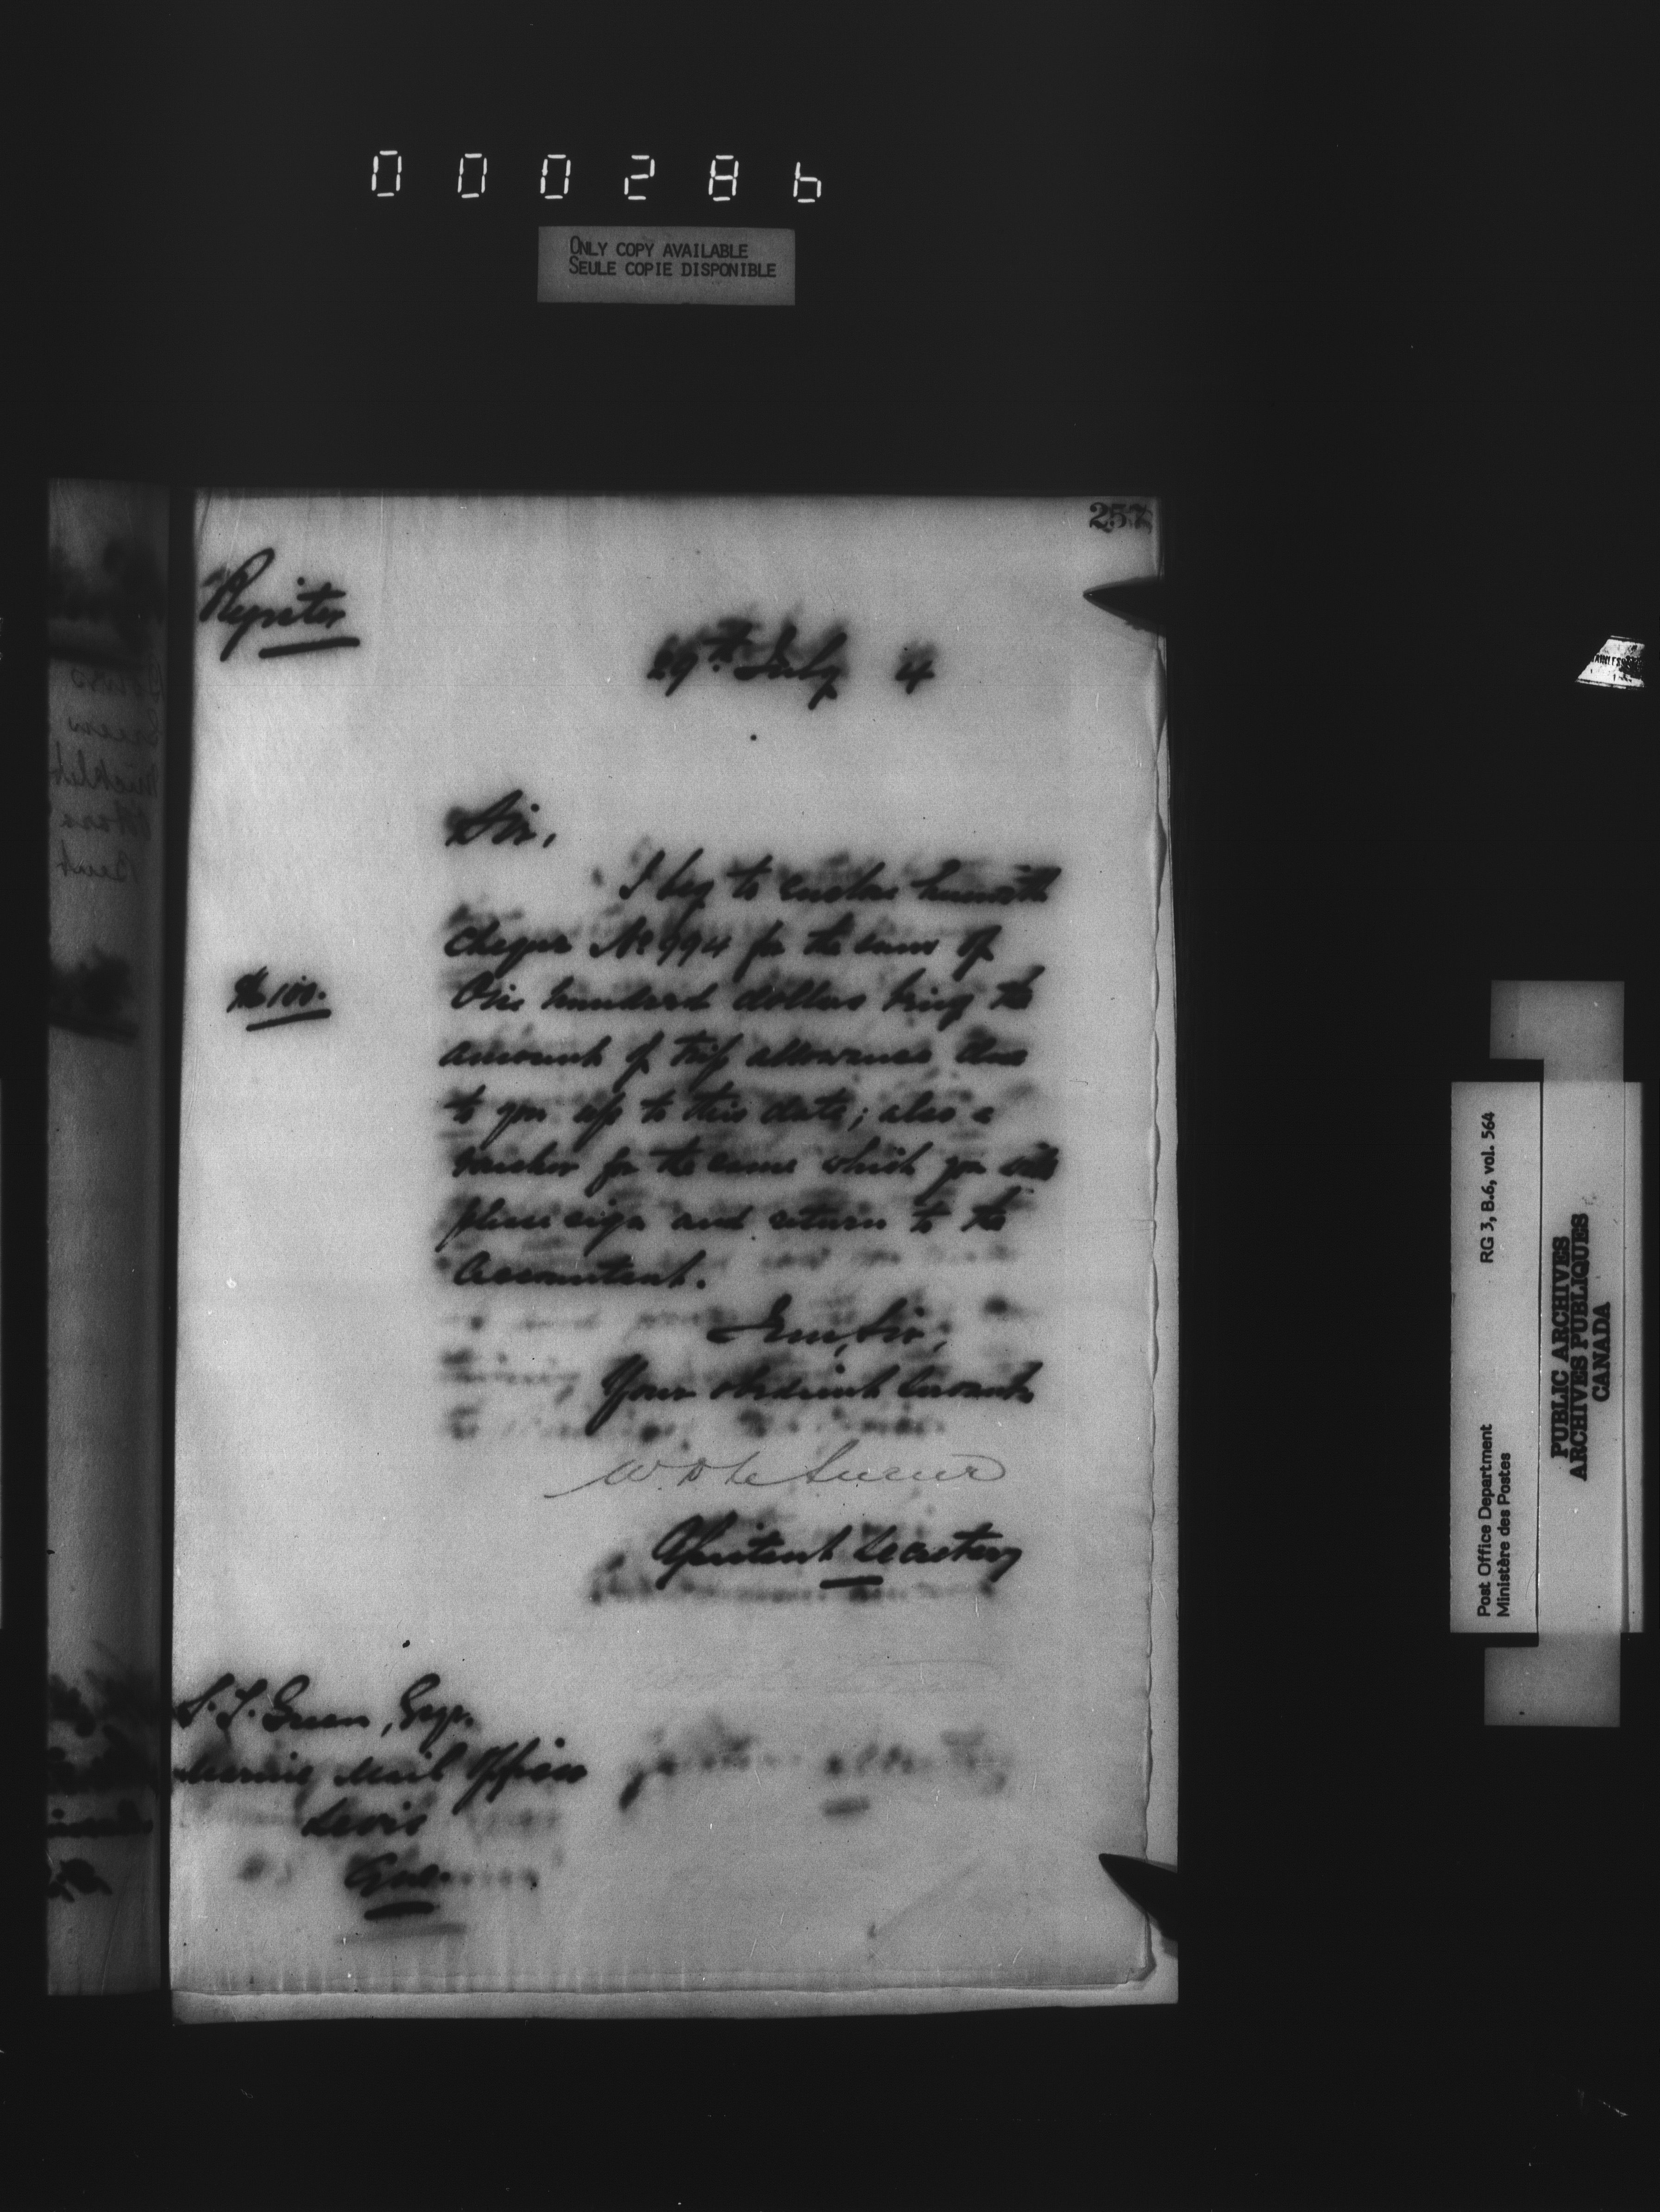 000286
ONLY COPY AVAILABLE
SEULE COPIE DISPONIBLE
257
Register
29th July 4
Sir,
I beg to enclose herewith
cheque No 994 for the sum of
$100.
One hundred dollars being the
amount of trip allowance due
to you up to this date; also a
voucher for the same which you will
please sign and return to the
Accountant.
I am, Sir,
Your obedient Servant
W. D. Le Sueur
Assistant Secretary
S. T. Green, Esqr.
Marine Mail Officer
Levis
Que
RG 3, B.6, vol. 564
Post Office Department
Ministère des Postes
PUBLIC ARCHIVES
ARCHIVES PUBLIQUES
CANADA